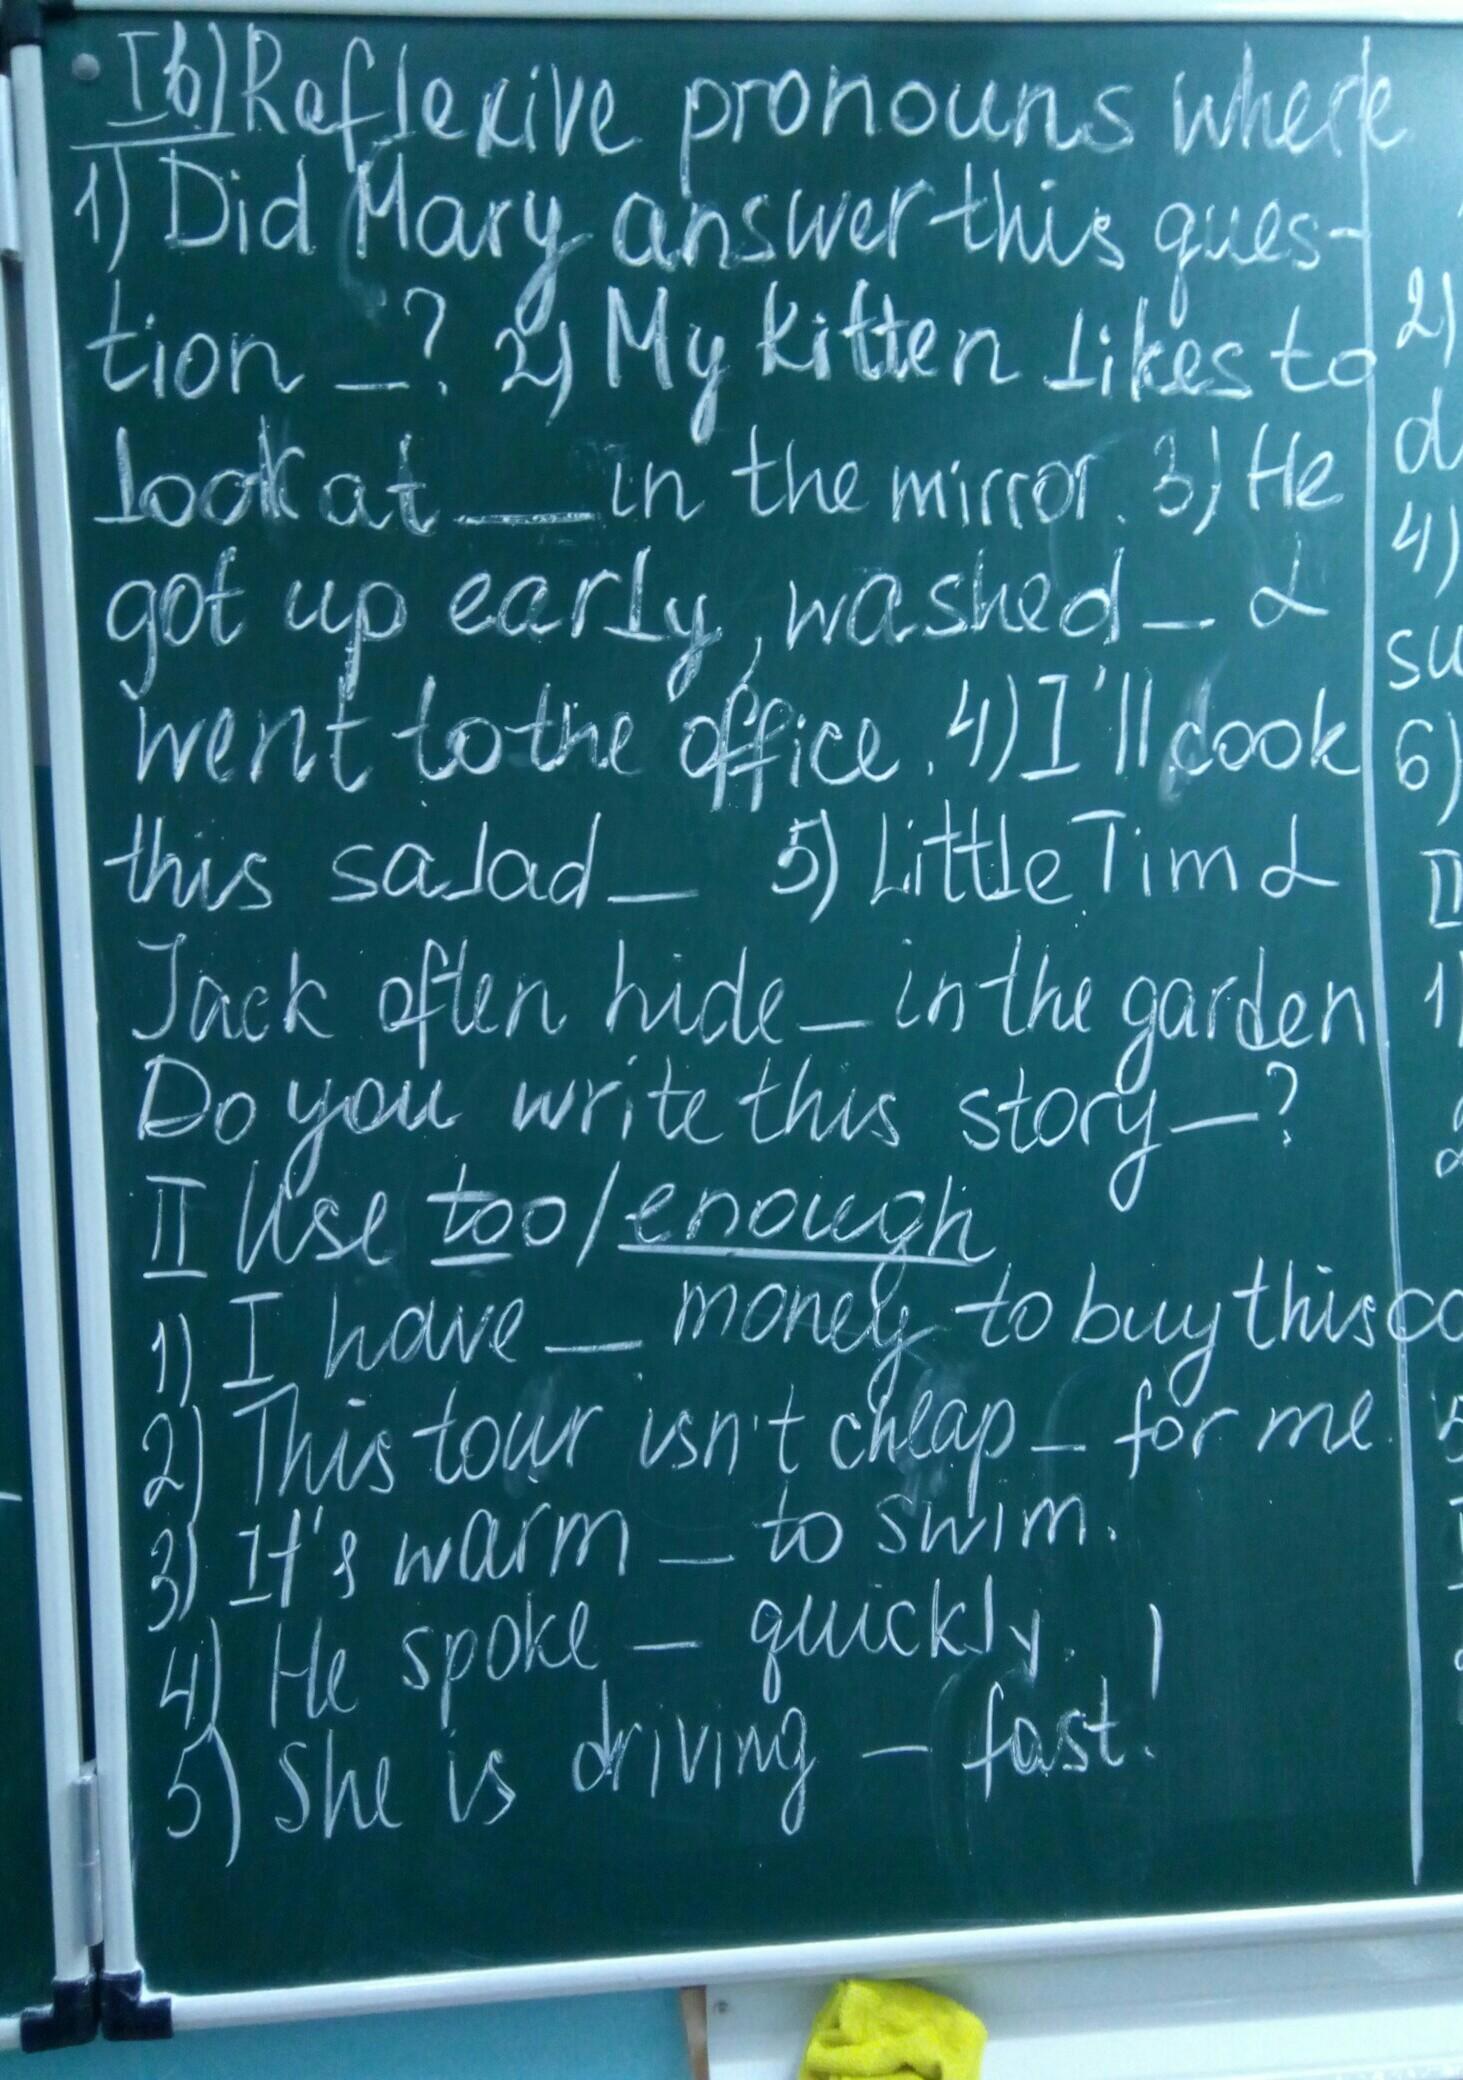 I б) Reflexive pronouns where
1) Did Mary answer this ques-
tion _? 2) My kitten likes to
look at __ in the mirror. 3) He
got up early, washed _ &
went to the office. 4) I'll cook
this salad _ 5) Little Tim &
Jack often hide _ in the garden
Do you write this story _?
II Use too/enough
1) I have _ money to buy this co
2) This tour isn't cheap _ for me.
3) It's warm _ to swim.
4) He spoke _ quickly.
5) She is driving _ fast!
2)
4)
su
6)
II
1)